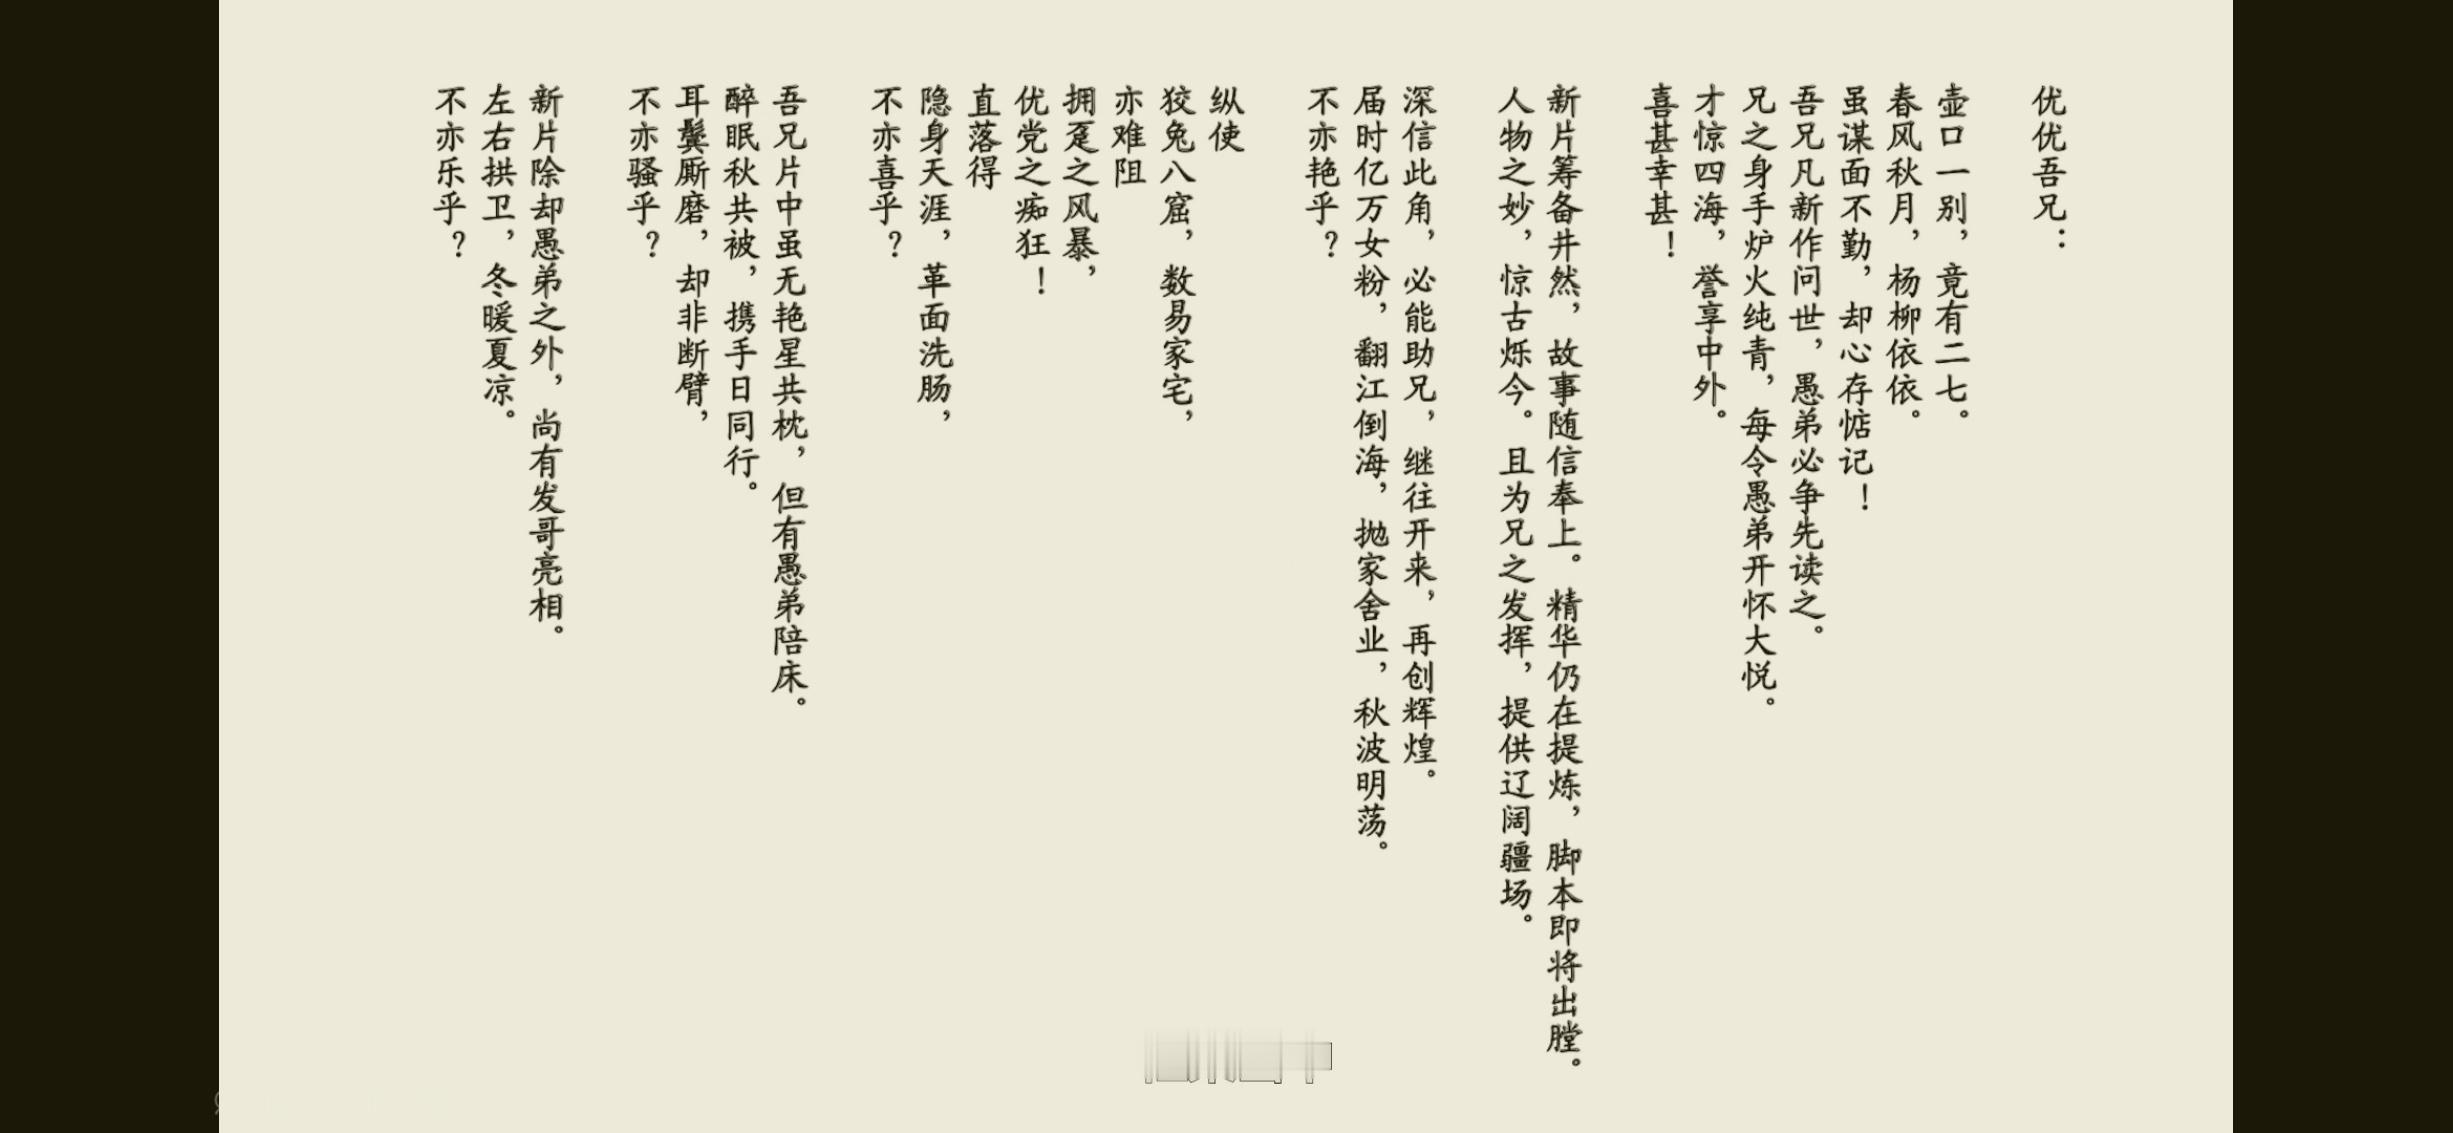 优优吾兄：
壶口一别，竟有二七。
春风秋月，杨柳依依。
虽谋面不勤，却心存惦记！
吾兄凡新作问世，愚弟必争先读之。
兄之身手炉火纯青，每令愚弟开怀大悦。
才惊四海，誉享中外。
喜甚幸甚！
新片筹备井然，故事随信奉上。精华仍在提炼，脚本即将出膛。
人物之妙，惊古烁今。且为兄之发挥，提供辽阔疆场。
深信此角，必能助兄，继往开来，再创辉煌。
届时亿万女粉，翻江倒海，抛家舍业，秋波明荡。
不亦艳乎？
纵使
狡兔八窟，数易家宅，
亦难阻
拥趸之风暴，
优党之痴狂！
直落得
隐身天涯，革面洗肠，
不亦喜乎？
吾兄片中虽无艳星共枕，但有愚弟陪床。
醉眠秋共被，携手日同行。
耳鬓厮磨，却非断臂，
不亦骚乎？
新片除却愚弟之外，尚有发哥亮相。
左右拱卫，冬暖夏凉。
不亦乐乎？